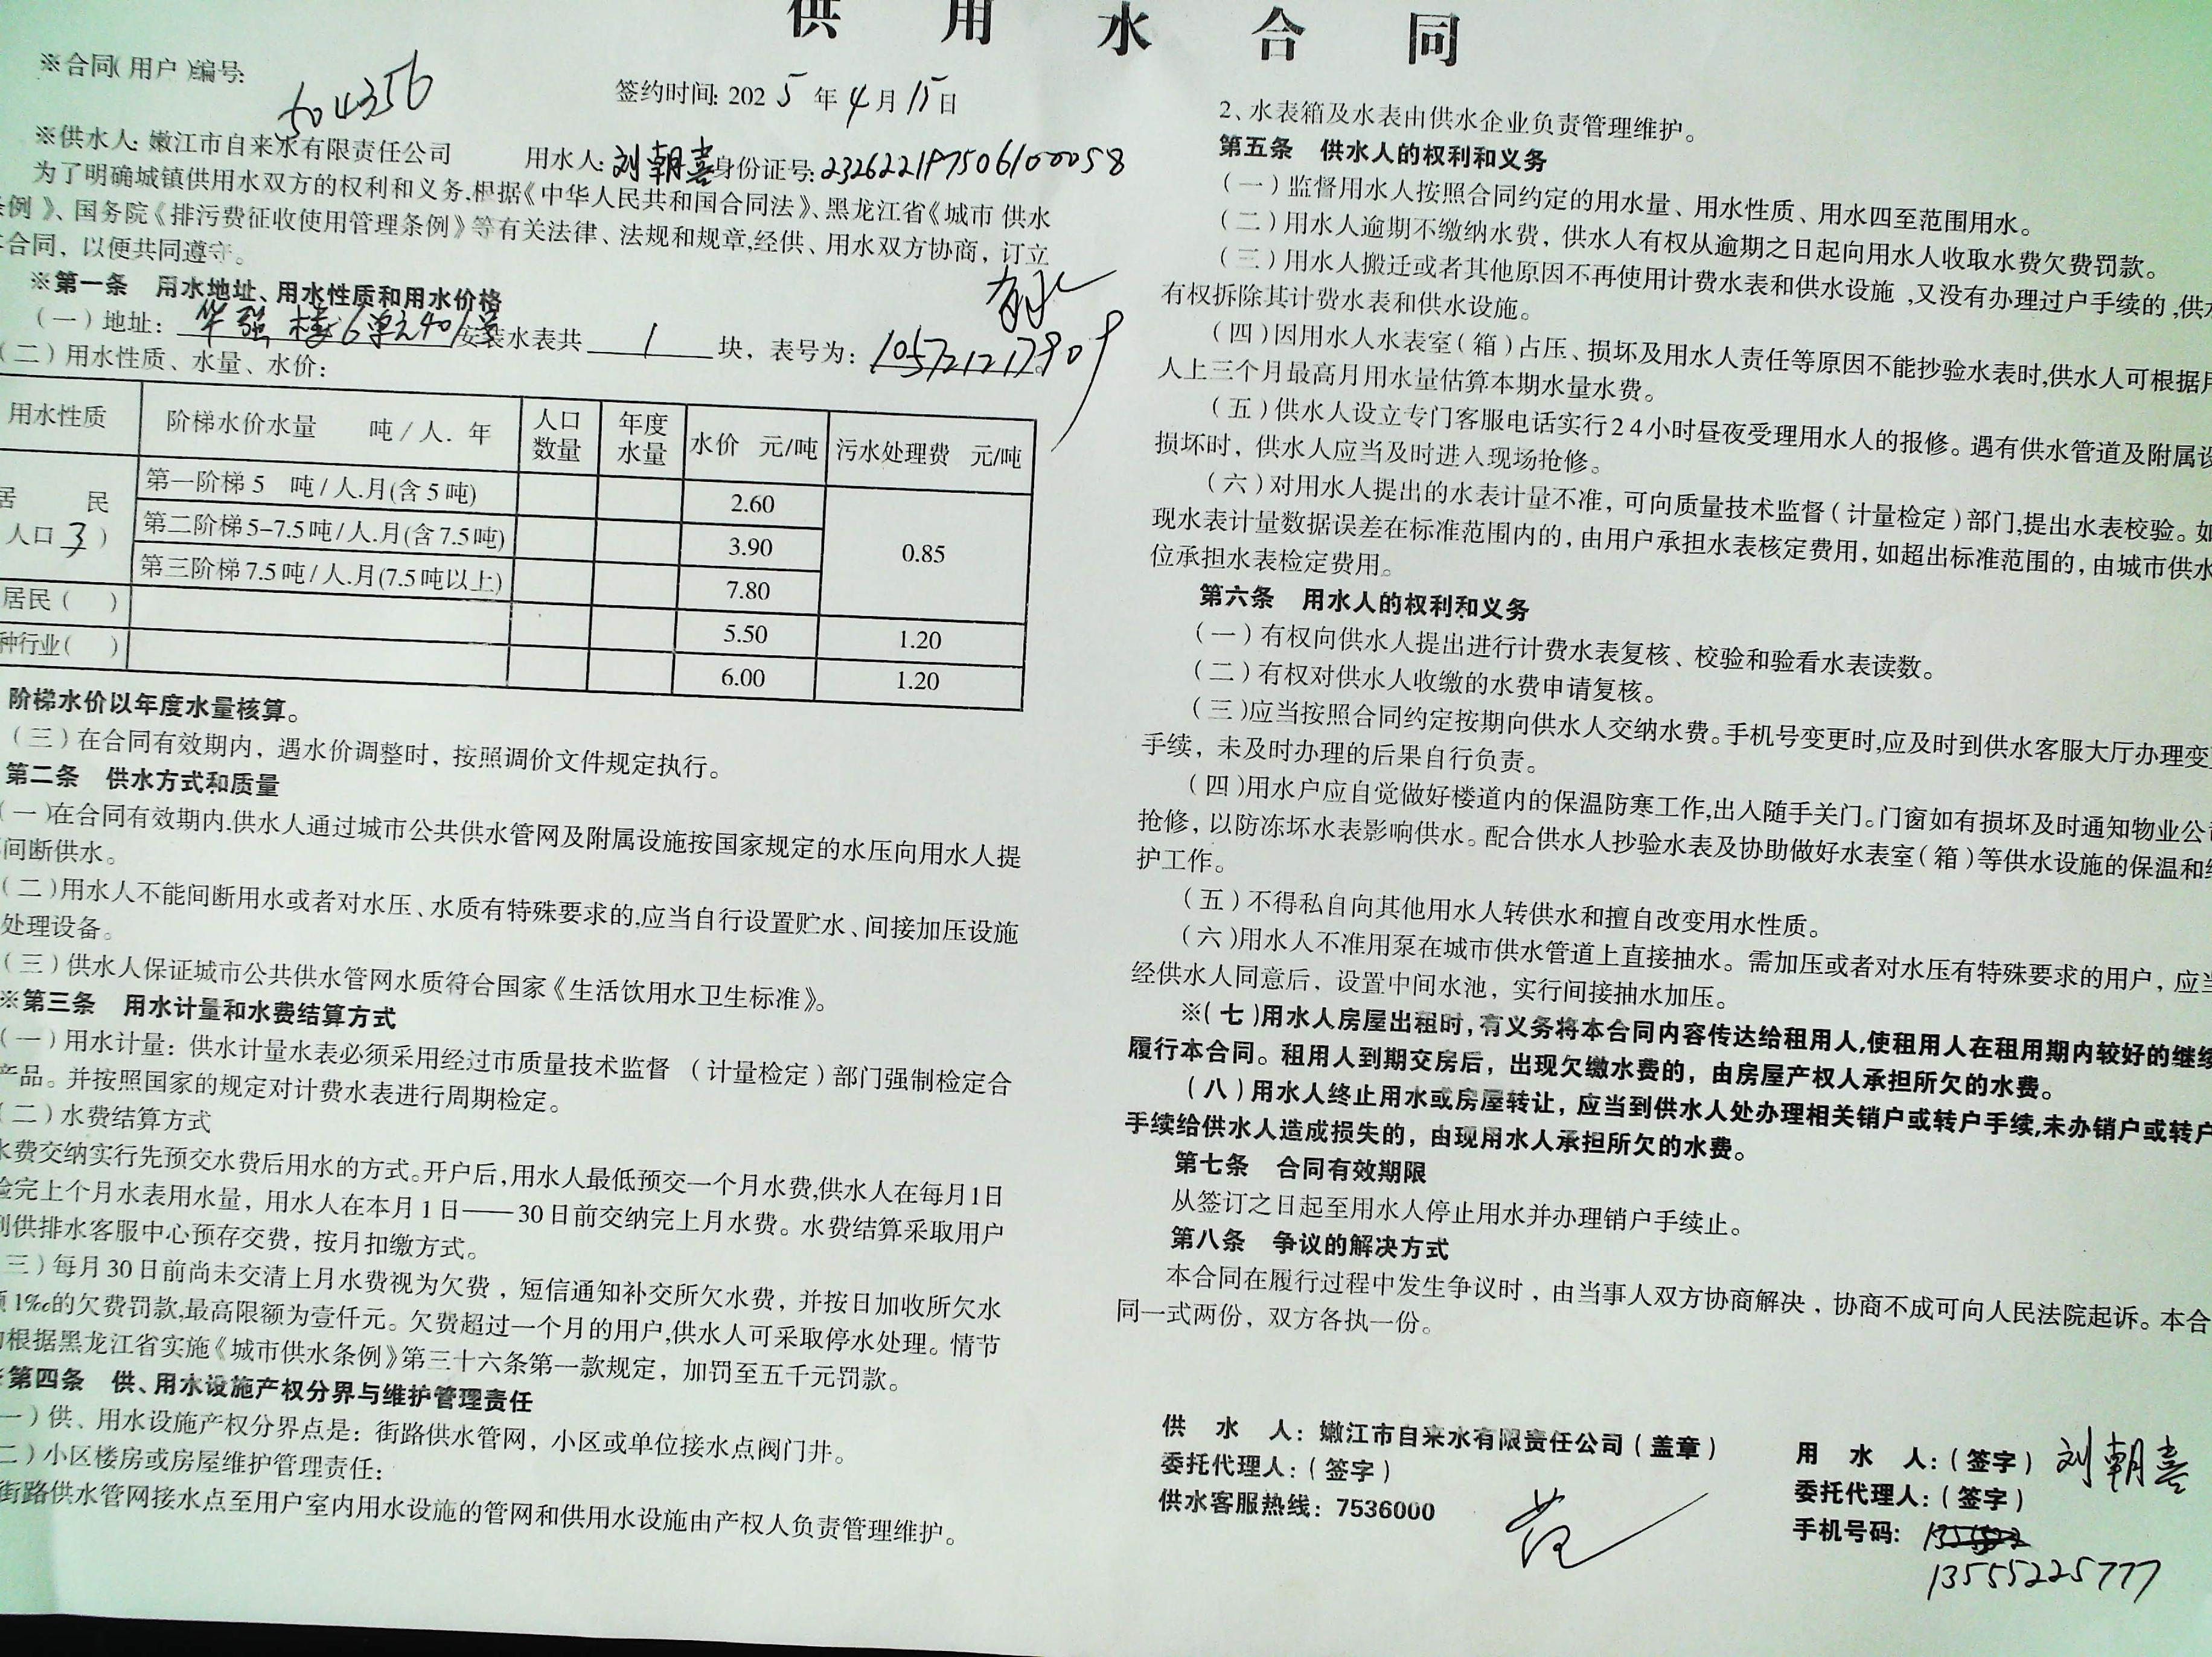 供 用 水 合 同
※合同(用户)编号:
504356
签约时间: 2025年4月15日
※供水人: 嫩江市自来水有限责任公司 用水人: 刘朝喜 身份证号: 232622197506100058
为了明确城镇供用水双方的权利和义务,根据《中华人民共和国合同法》、黑龙江省《城市 供水
条例》、国务院《排污费征收使用管理条例》等有关法律、法规和规章,经供、用水双方协商, 订立
合同, 以便共同遵守。
※第一条 用水地址、用水性质和用水价格
(一)地址: 华强楼6单元401室 安装水表共 1 块, 表号为: 105721217909。
(二)用水性质、水量、水价:
用水性质 阶梯水价水量 吨/人. 年 人口数量 年度水量 水价 元/吨 污水处理费 元/吨
居 民
人口3)
第一阶梯 5 吨/人.月(含5吨) 2.60
第二阶梯5-7.5吨/人.月(含7.5吨) 3.90 0.85
第三阶梯7.5吨/人.月(7.5吨以上) 7.80
居民( ) 5.50 1.20
种行业( ) 6.00 1.20
阶梯水价以年度水量核算。
(三)在合同有效期内, 遇水价调整时, 按照调价文件规定执行。
第二条 供水方式和质量
(一)在合同有效期内,供水人通过城市公共供水管网及附属设施按国家规定的水压向用水人提
间断供水。
(二)用水人不能间断用水或者对水压、水质有特殊要求的,应当自行设置贮水、间接加压设施
处理设备。
(三)供水人保证城市公共供水管网水质符合国家《生活饮用水卫生标准》。
※第三条 用水计量和水费结算方式
(一)用水计量: 供水计量水表必须采用经过市质量技术监督 (计量检定)部门强制检定合
产品。并按照国家的规定对计费水表进行周期检定。
(二)水费结算方式
水费交纳实行先预交水费后用水的方式。开户后,用水人最低预交一个月水费,供水人在每月1日
验完上个月水表用水量, 用水人在本月1日——30日前交纳完上月水费。水费结算采取用户
到供排水客服中心预存交费, 按月扣缴方式。
三)每月30日前尚未交清上月水费视为欠费, 短信通知补交所欠水费, 并按日加收所欠水
1‰的欠费罚款,最高限额为壹仟元。欠费超过一个月的用户,供水人可采取停水处理。情节
根据黑龙江省实施《城市供水条例》第三十六条第一款规定, 加罚至五千元罚款。
第四条 供、用水设施产权分界与维护管理责任
一)供、用水设施产权分界点是: 街路供水管网, 小区或单位接水点阀门井。
二)小区楼房或房屋维护管理责任:
街路供水管网接水点至用户室内用水设施的管网和供用水设施由产权人负责管理维护。
2、水表箱及水表由供水企业负责管理维护。
第五条 供水人的权利和义务
(一)监督用水人按照合同约定的用水量、用水性质、用水四至范围用水。
(二)用水人逾期不缴纳水费, 供水人有权从逾期之日起向用水人收取水费欠费罚款。
(三)用水人搬迁或者其他原因不再使用计费水表和供水设施,又没有办理过户手续的,供水
有权拆除其计费水表和供水设施。
(四)因用水人水表室(箱)占压、损坏及用水人责任等原因不能抄验水表时,供水人可根据用
人上三个月最高月用水量估算本期水量水费。
(五)供水人设立专门客服电话实行24小时昼夜受理用水人的报修。遇有供水管道及附属设
损坏时, 供水人应当及时进入现场抢修。
(六)对用水人提出的水表计量不准, 可向质量技术监督(计量检定)部门,提出水表校验。如
现水表计量数据误差在标准范围内的, 由用户承担水表核定费用, 如超出标准范围的, 由城市供水
位承担水表检定费用。
第六条 用水人的权利和义务
(一)有权向供水人提出进行计费水表复核、校验和验看水表读数。
(二)有权对供水人收缴的水费申请复核。
(三)应当按照合同约定按期向供水人交纳水费。手机号变更时,应及时到供水客服大厅办理变更
手续, 未及时办理的后果自行负责。
(四)用水户应自觉做好楼道内的保温防寒工作,出入随手关门。门窗如有损坏及时通知物业公司
抢修, 以防冻坏水表影响供水。配合供水人抄验水表及协助做好水表室(箱)等供水设施的保温和维
护工作。
(五)不得私自向其他用水人转供水和擅自改变用水性质。
(六)用水人不准用泵在城市供水管道上直接抽水。需加压或者对水压有特殊要求的用户, 应当
经供水人同意后, 设置中间水池, 实行间接抽水加压。
※(七)用水人房屋出租时,有义务将本合同内容传达给租用人,使租用人在租用期内较好的继续
履行本合同。租用人到期交房后, 出现欠缴水费的, 由房屋产权人承担所欠的水费。
(八)用水人终止用水或房屋转让, 应当到供水人处办理相关销户或转户手续,未办销户或转户
手续给供水人造成损失的, 由现用水人承担所欠的水费。
第七条 合同有效期限
从签订之日起至用水人停止用水并办理销户手续止。
第八条 争议的解决方式
本合同在履行过程中发生争议时, 由当事人双方协商解决, 协商不成可向人民法院起诉。本合
同一式两份, 双方各执一份。
供 水 人: 嫩江市自来水有限责任公司(盖章)
委托代理人: (签字)
供水客服热线: 7536000
用 水 人: (签字) 刘朝喜
委托代理人: (签字)
手机号码:
13555225777